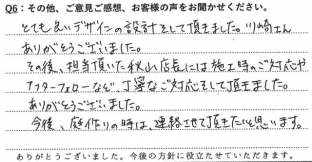 Q6：その他、ご意見ご感想、お客様の声をお聞かせください。
とても良いデザインの設計をして頂きました。川崎さん
ありがとうございました。
その後、担当頂いた秋山店長には施工時のご対応や
アフターフォローなど、丁寧なご対応をして頂きました。
ありがとうございました。
今後、庭作りの時は、連絡させて頂きたいと思います。
ありがとうございました。今後の方針に役立たせていただきます。